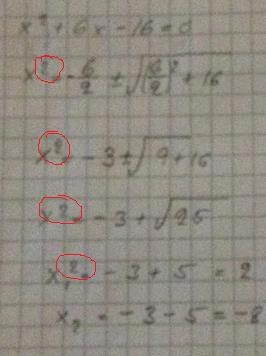 x² + 6x - 16 = 0
x² = -6/2 ± √((6/2)² + 16)
x² = -3 ± √(9+16)
x² = -3 + √25
x₁² = -3 + 5 = 2
x₂ = -3 - 5 = -8